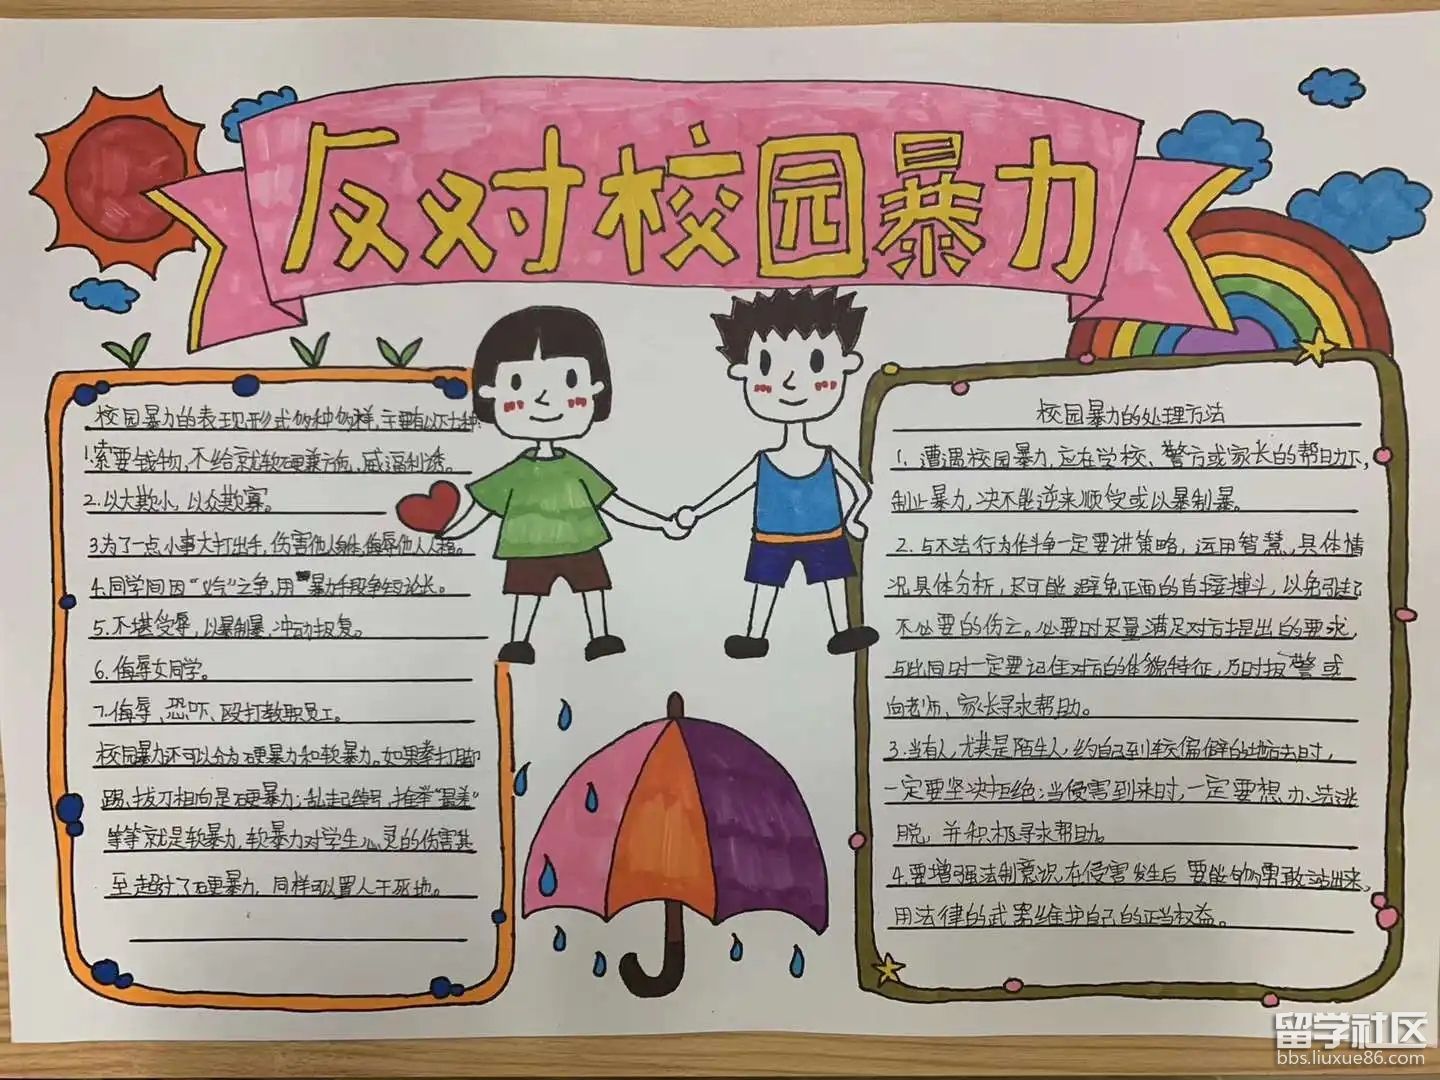 反对校园暴力
校园暴力的表现形式多种多样,主要有以下七种:
1.索要钱物,不给就软硬兼施、威逼利诱。
2.以大欺小,以众欺寡。
3.为了一点小事大打出手,伤害他人身体,侮辱他人人格。
4.同学间因“义气”之争,用暴力手段争短论长。
5.不堪受辱,以暴制暴,冲动报复。
6.侮辱女同学。
7.侮辱、恐吓、殴打教职员工。
校园暴力还可以分为硬暴力和软暴力。如果拳打脚
踢、拔刀相向是硬暴力;乱起绰号,推举“最差”
等等就是软暴力,软暴力对学生心灵的伤害甚
至超过了硬暴力,同样可以置人于死地。
校园暴力的处理方法
1.遭遇校园暴力,应在学校、警方或家长的帮助下,
制止暴力,决不能逆来顺受或以暴制暴。
2.与不法行为作斗争一定要讲策略,运用智慧,具体情
况具体分析,尽可能避免正面的直接搏斗,以免引起
不必要的伤亡。必要时尽量满足对方提出的要求,
与此同时一定要记住对方的体貌特征,及时报警或
向老师、家长寻求帮助。
3.当有人,尤其是陌生人,约自己到较偏僻的地方去时,
一定要坚决拒绝;当侵害到来时,一定要想办法逃
脱,并积极寻求帮助。
4.要增强法制意识,在侵害发生后要能够勇敢站出来,
用法律的武器维护自己的正当权益。
留学社区
bbs.liuxue86.com